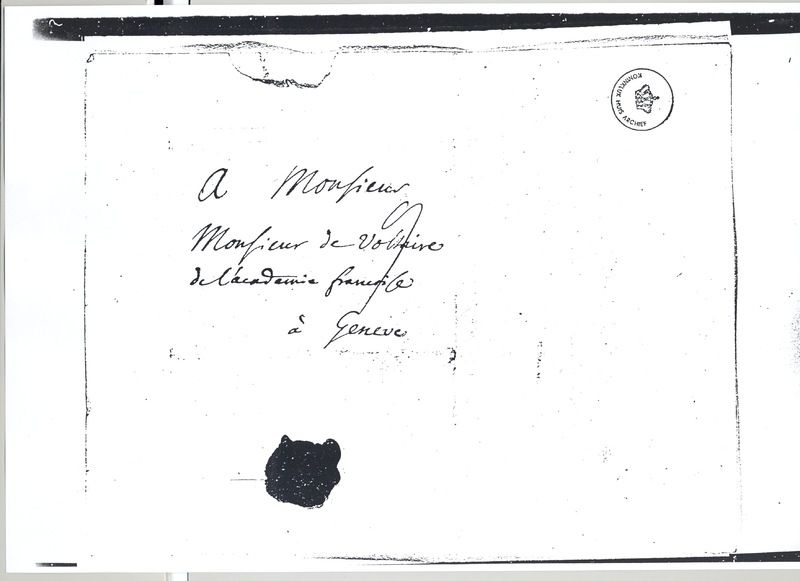 KONINKLIJK HUIS ARCHIEF
A Monsieur
Monsieur de Voltaire
de l'académie françoise
à Genève